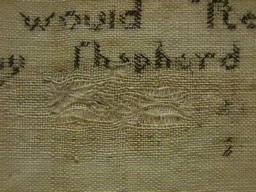 would Re
y Shepherd